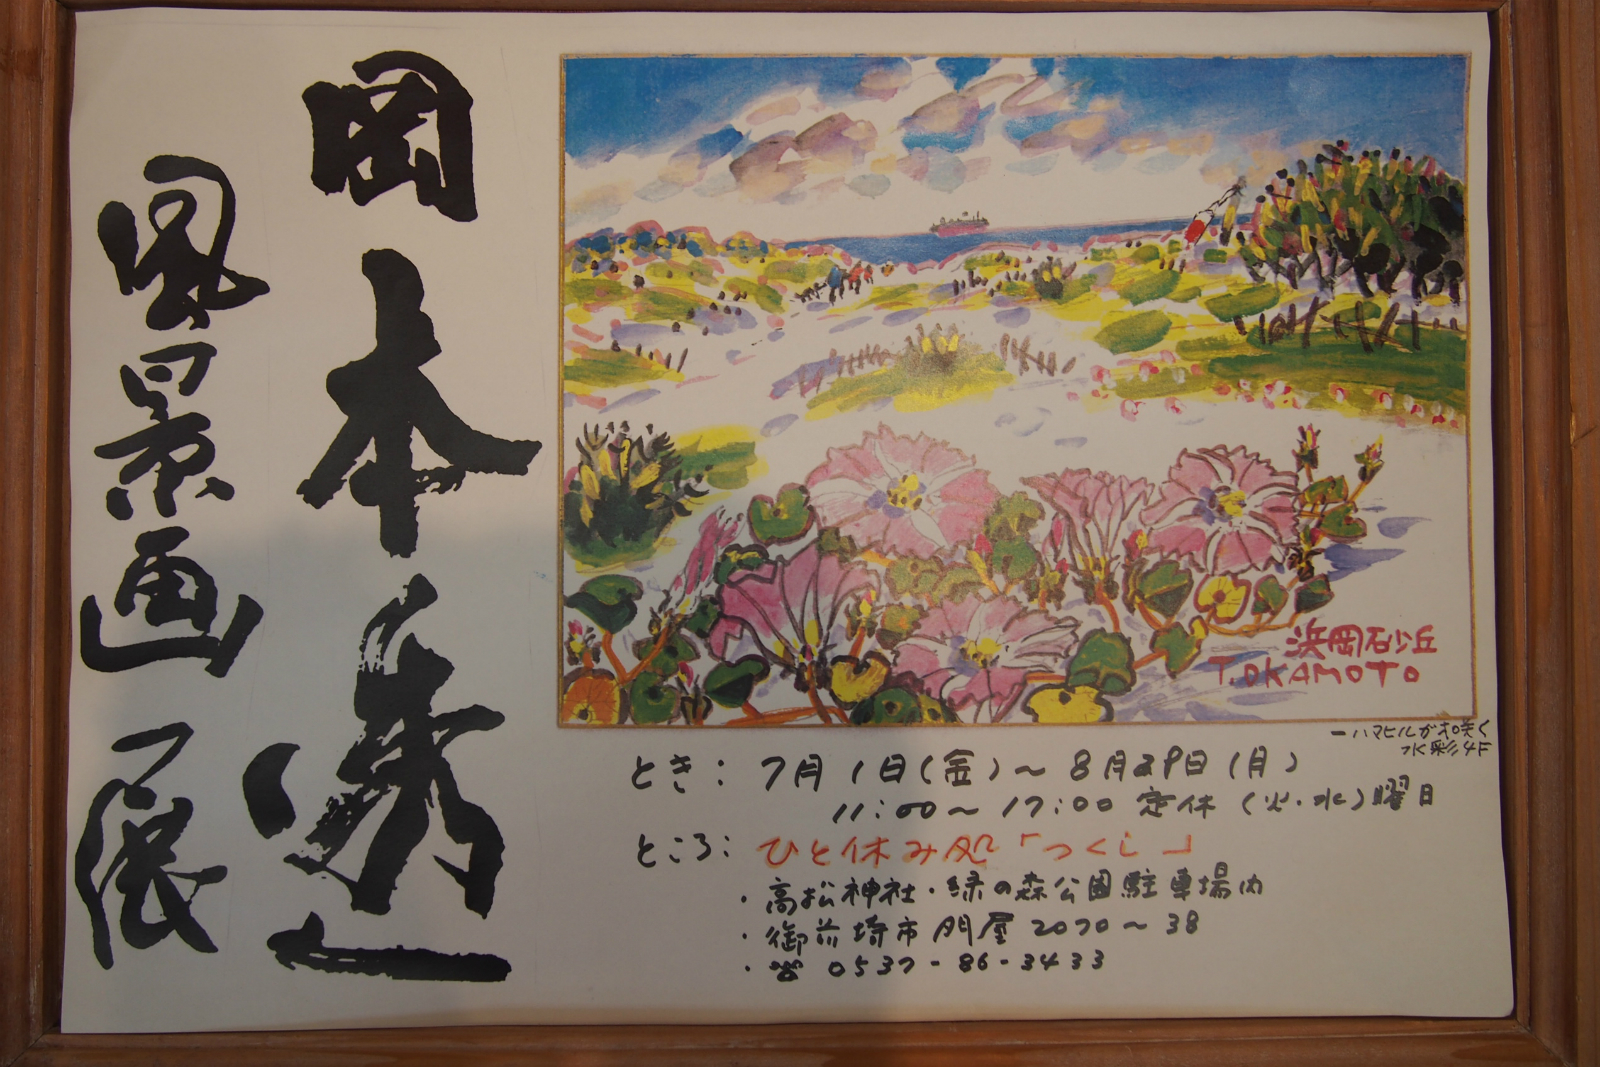 岡本透
風景画展
浜岡砂丘
T.OKAMOTO
ーハマヒルガオ咲く
水彩4F
とき：7月1日(金)～8月29日(月)
11:00～17:00 定休（火・水）曜日
ところ：ひと休み処「つくし」
・高松神社・緑の森公園駐車場内
・御前埼市門屋2070～38
・☎ 0537-86-3433